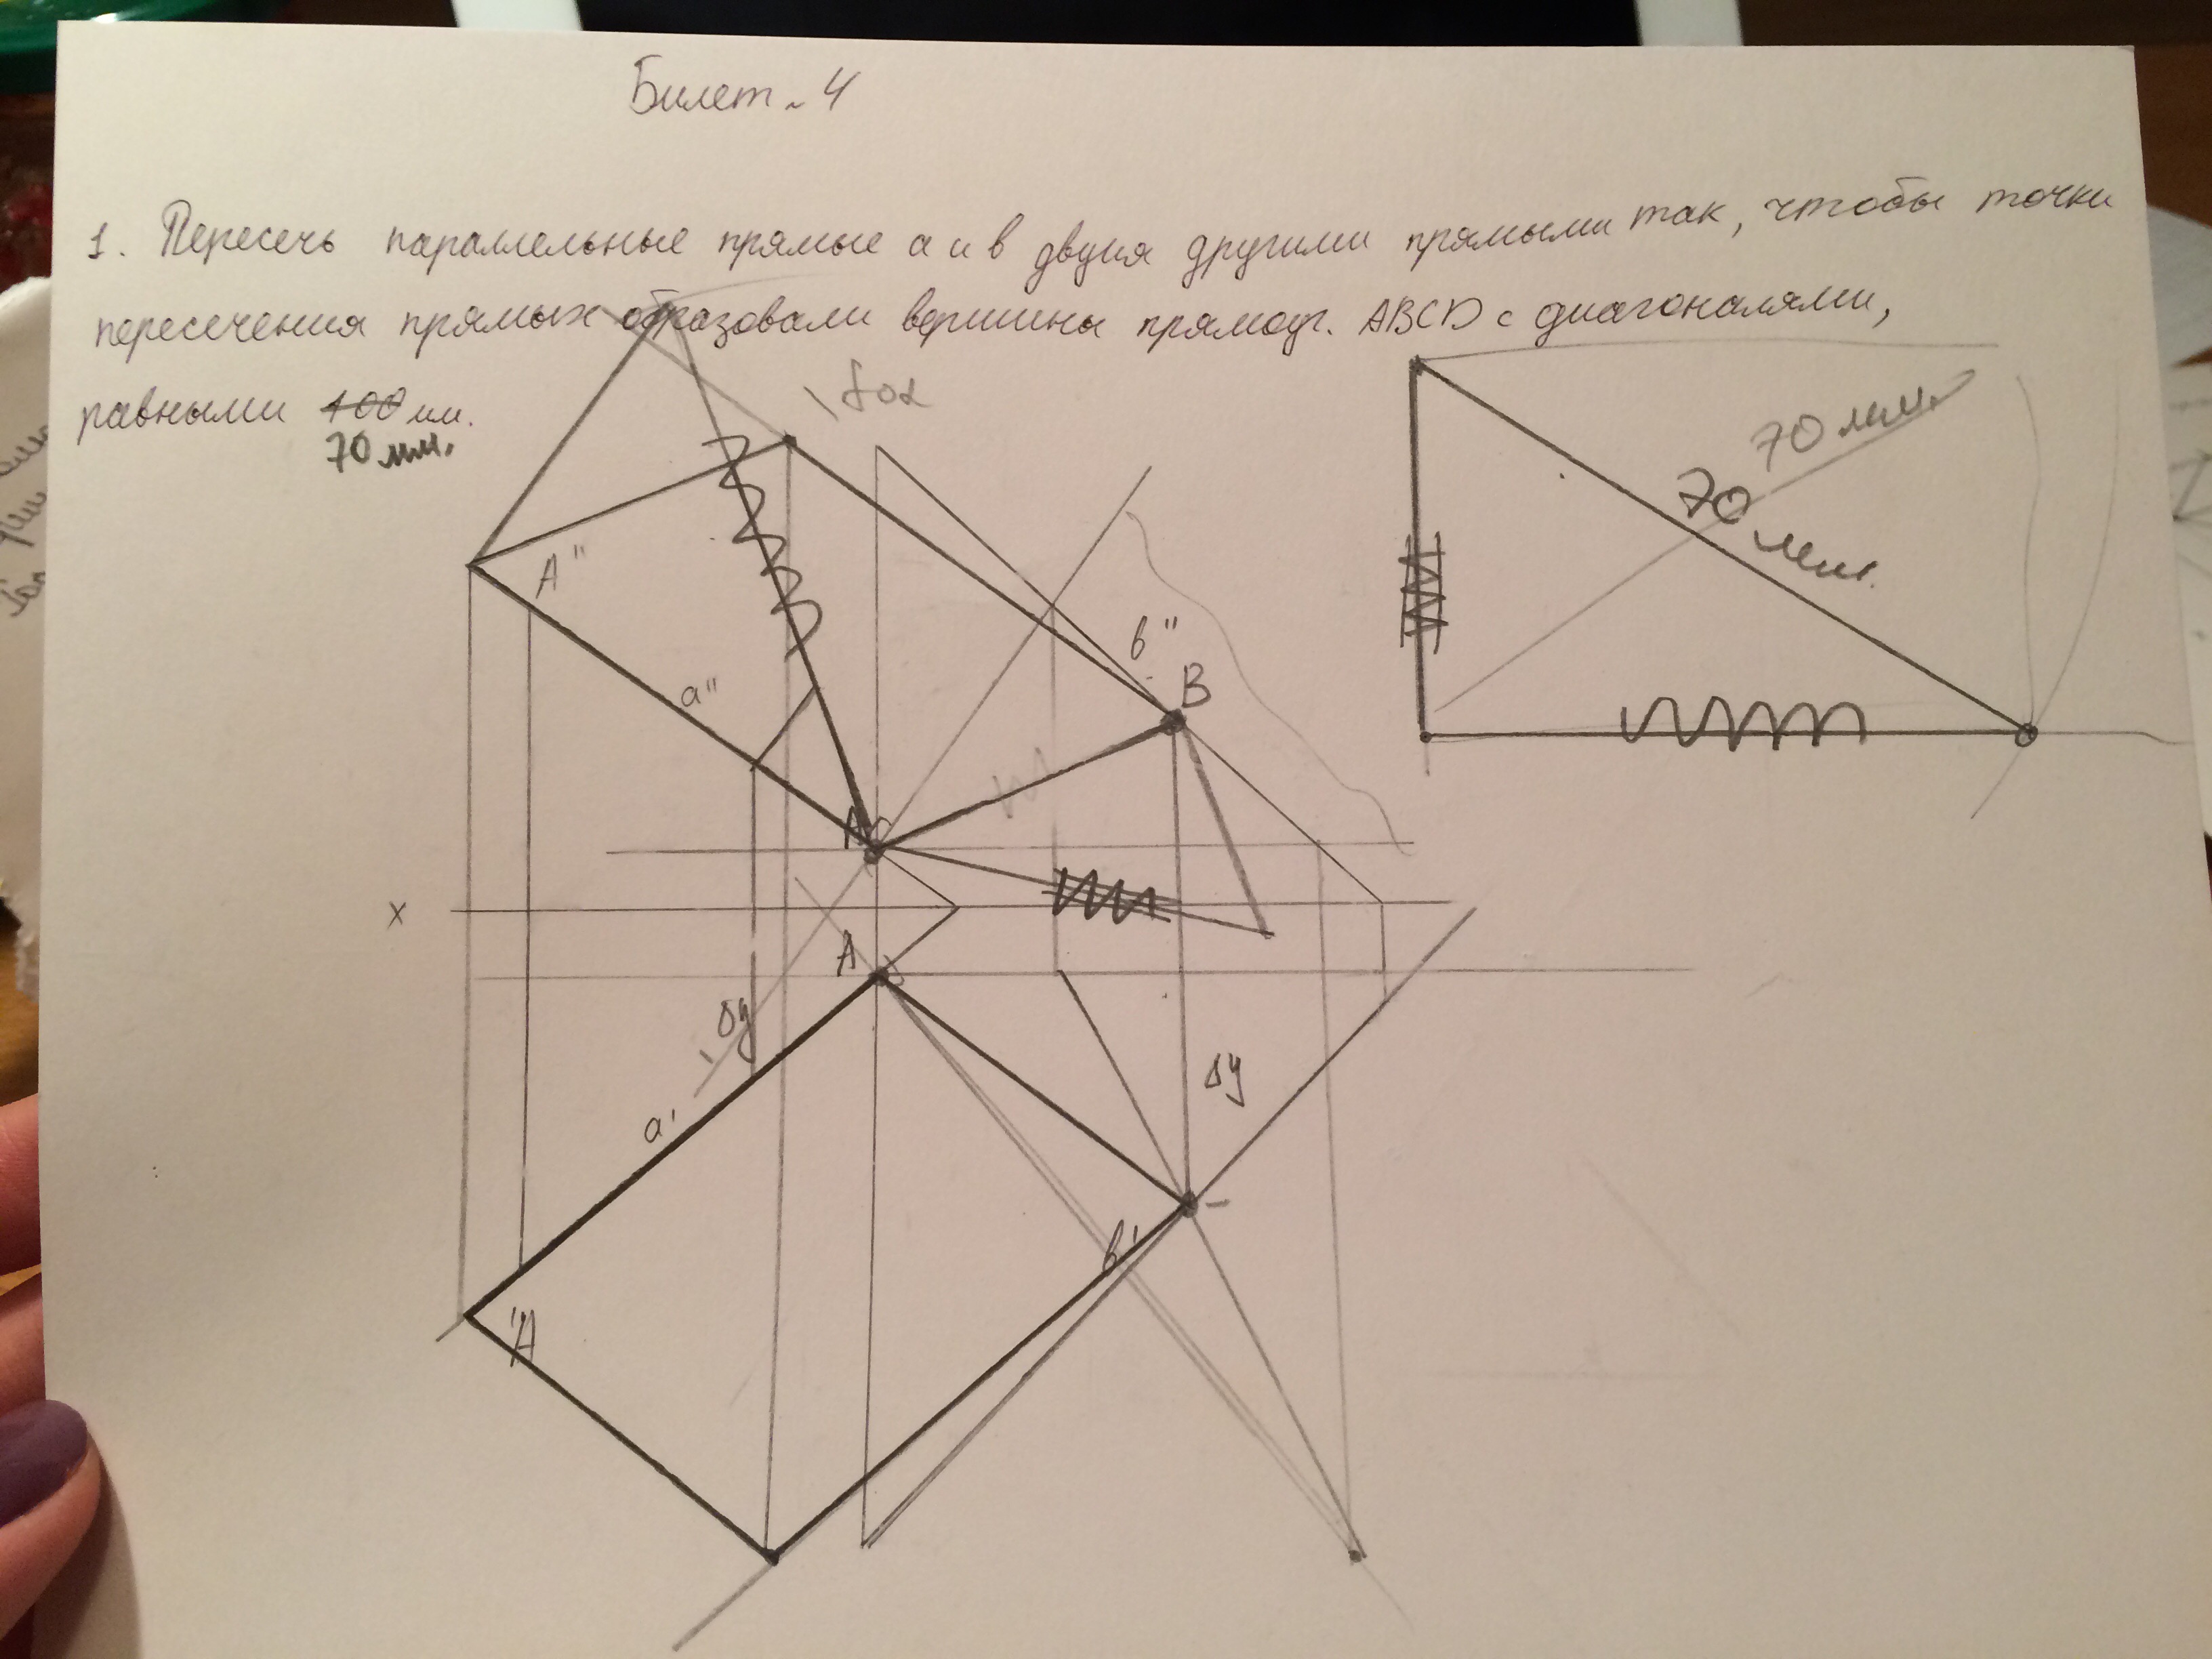 Билет ~ 4
1. Пересечь параллельные прямые а и в двумя другими прямыми так, чтобы точки
пересечения прямых образовали вершины прямоуг. ABCD с диагоналями,
равными 100 мм.
70 мм.
70 мм.
70 мм.
A"
a"
в"
B
A
x
A
Δy
Δy
a'
в'
A'